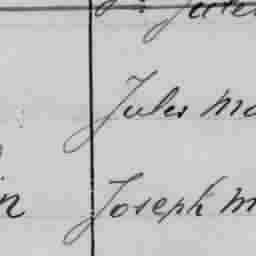 Jules Ma
in Joseph M